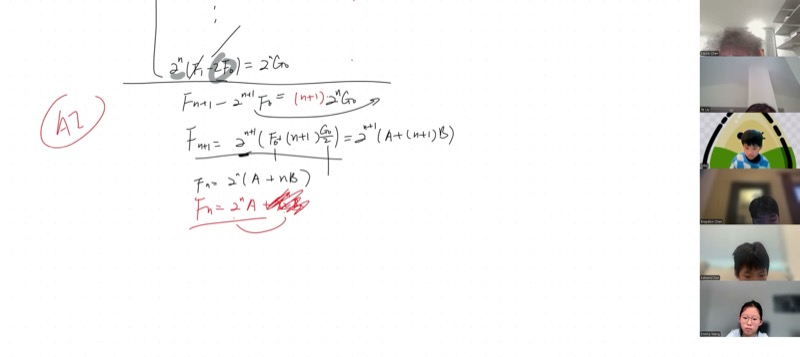 2^n(F₁-2F₀) = 2^n G₀
F_{n+1} - 2^{n+1} F₀ = (n+1) 2^n G₀
A2
F_{n+1} = 2^{n+1} (F₀ + (n+1) G₀/2) = 2^{n+1} (A + (n+1) B)
F_n = 2^n (A + nB)
F_n = 2^n A +